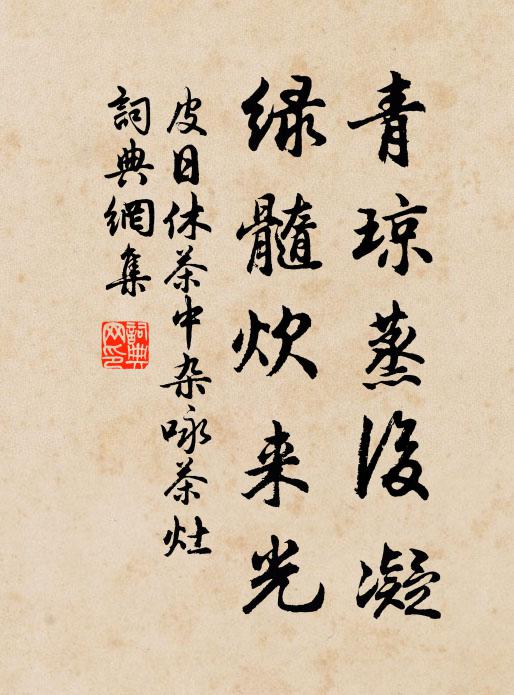 青琼蒸後凝
绿髓炊来光
皮日休茶中杂咏茶灶
詞典網集
詞典网印